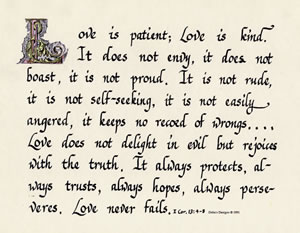 Love is patient; Love is kind.
It does not envy, it does not
boast, it is not proud. It is not rude,
it is not self-seeking, it is not easily
angered, it keeps no record of wrongs....
Love does not delight in evil but rejoices
with the truth. It always protects, al-
ways trusts, always hopes, always perse-
veres. Love never fails. I Cor. 13:4-8